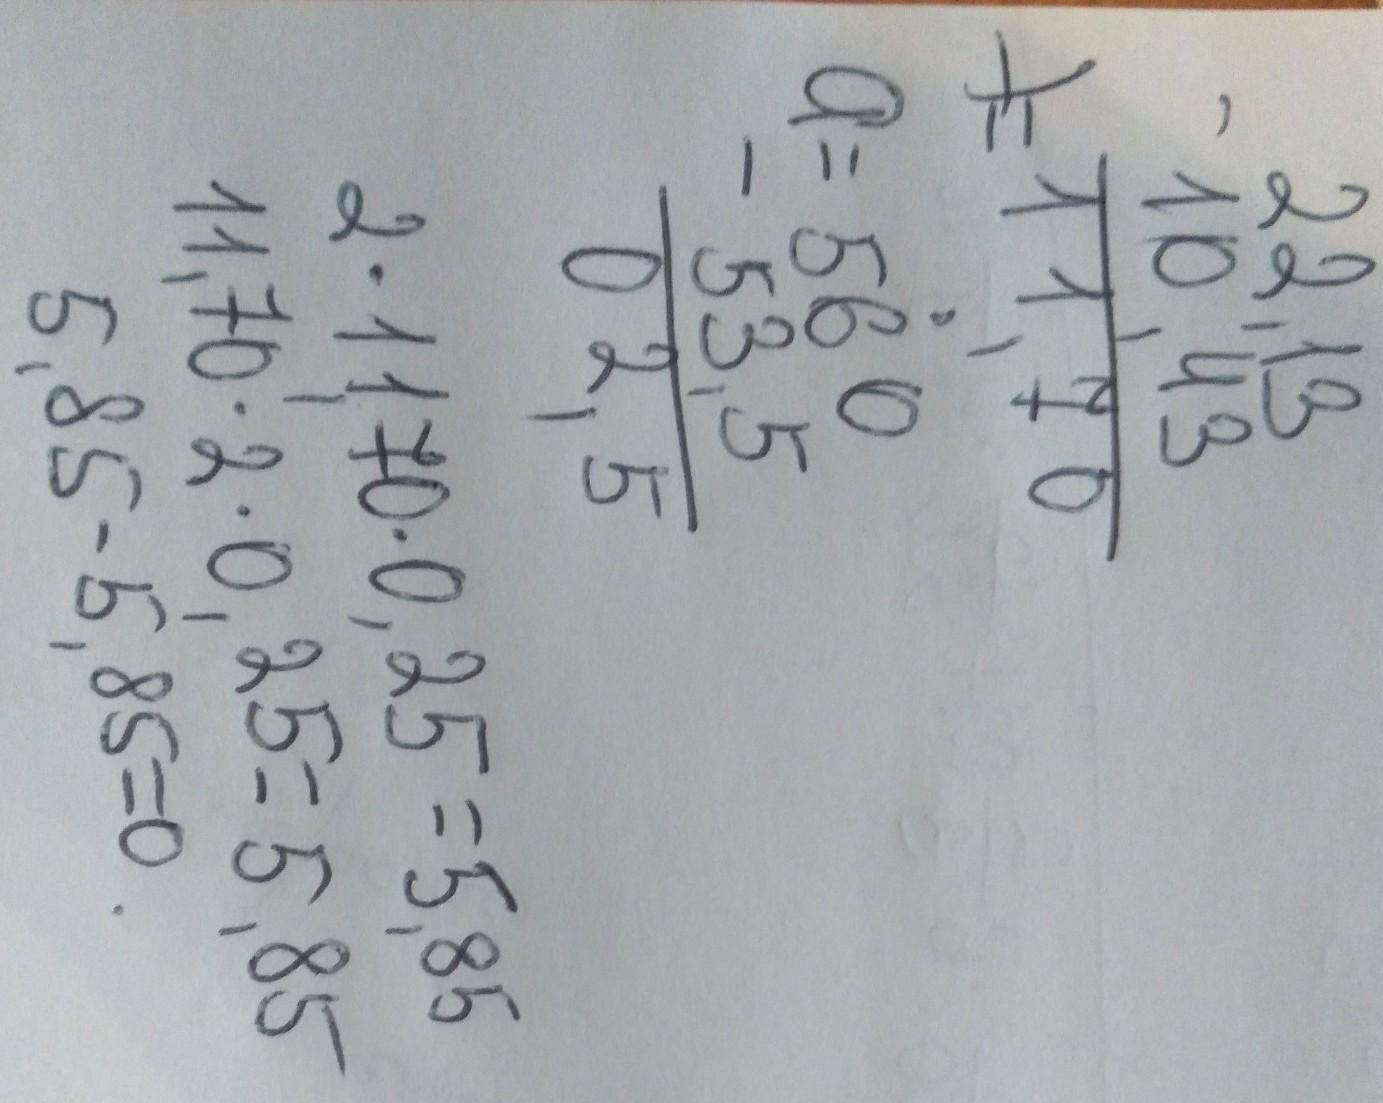 22,13
- 10,43
t= 11,70
a= 56 0
- 53,5
02,5
2·11,70·0,25=5,85
11,70·2·0,25=5,85
5,85-5,85=0.